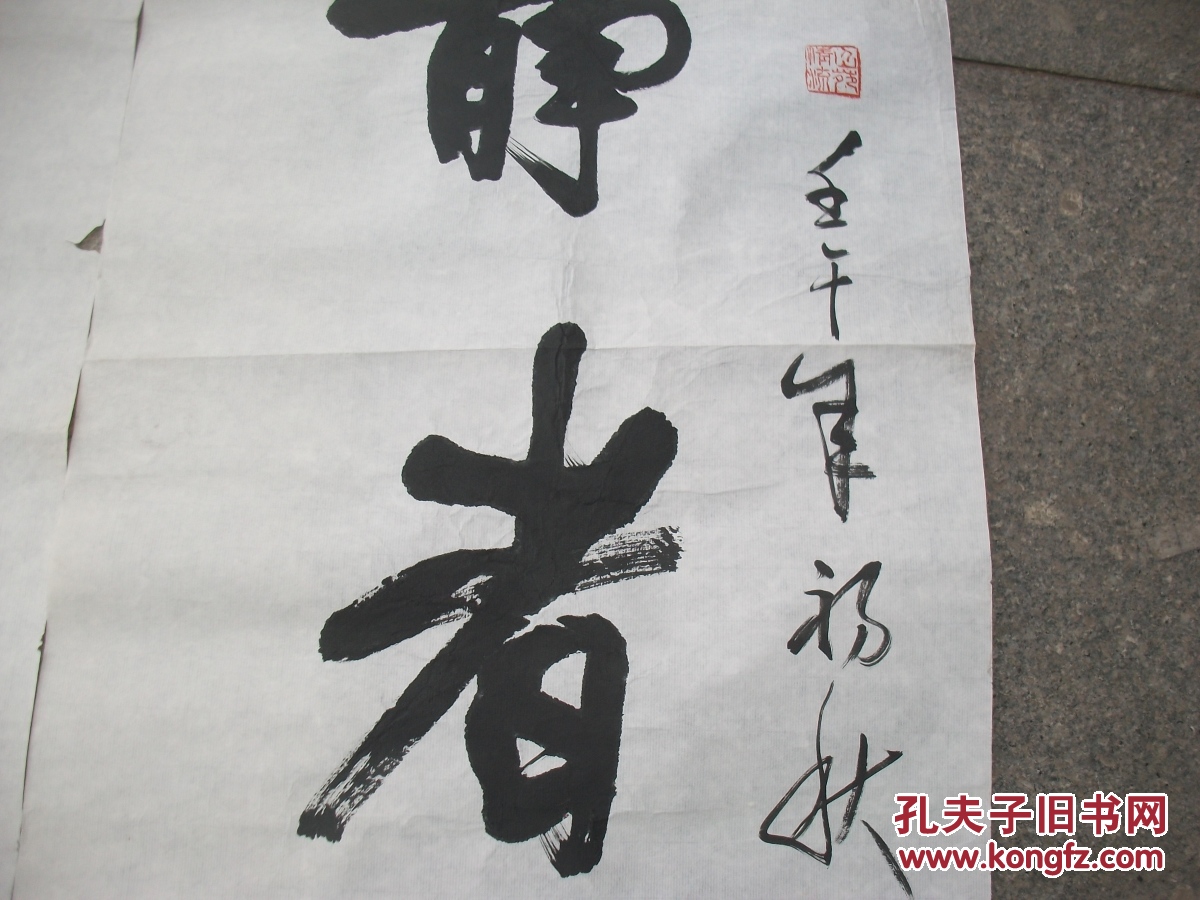 壬午年初秋
静者
孔夫子旧书网
www.kongfz.com